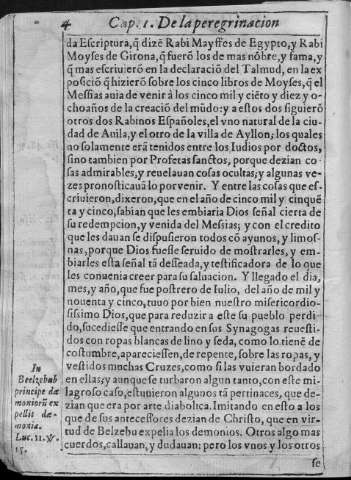 4 Cap. 1. De la peregrinacion
da Escriptura, q̃ dizẽ Rabi Maysses de Egypto, y Rabi
Moyses de Girona, q̃ fuerõ los de mas nõbre, y fama, y
q̃ mas escriuierõ en la declaraciõ del Talmud, en la ex
posiciõ q̃ hizierõ sobre los cinco libros de Moyses, q̃ el
Messias auia de venir à los cinco mil y ciẽto y diez y o-
cho años de la creaciõ del mũdo: y a estos dos siguierõ
otros dos Rabinos Españoles, el vno natural de la ciu-
dad de Auila, y el otro de la villa de Ayllon; los quales
no solamente erã tenidos entre los Iudios por doctos,
sino tambien por Profetas sanctos, porque dezian co-
sas admirables, y reuelauan cosas ocultas; y algunas ve-
zes pronosticauã lo por venir. Y entre las cosas que es-
criuieron, dixeron, que en el año de cinco mil y cinquẽ
ta y cinco, sabian que les embiaria Dios señal cierta de
su redempcion, y venida del Messias; y con el credito
que les dauan se dispusieron todos cõ ayunos, y limos-
nas, porque Dios fuesse seruido de mostrarles, y em-
biarles esta señal tã desseada, y testificadora de lo que
les conuenia creer para su saluacion. Y llegado el dia,
mes, y año, que fue postrero de Iulio, del año de mil y
nouenta y cinco, tuuo por bien nuestro misericordio-
sissimo Dios, que para reduzir a este su pueblo perdi
do, sucediesse que entrando en sus Synagogas reuesti-
dos con ropas blancas de lino y seda, como lo tienẽ de
costumbre, apareciessen, de repente, sobre las ropas, y
vestidos muchas Cruzes, como si las vuieran bordado
en ellas; y aunque se turbaron algun tanto, con este mi-
lagroso caso, estuuieron algunos tã pertinaces, que de-
zian que era por arte diabolica. Imitando en esto a los
que de sus antecessores dezian de Christo, que en vir-
tud de Belzebu expelia los demonios. Otros algo mas
cuerdos, callauan, y dudauan; pero los vnos y los otros
se
In
Beelzebub
principe dæ
moniorũ ex
pellit dæ-
monia.
Luc. 11. ℣.
15.